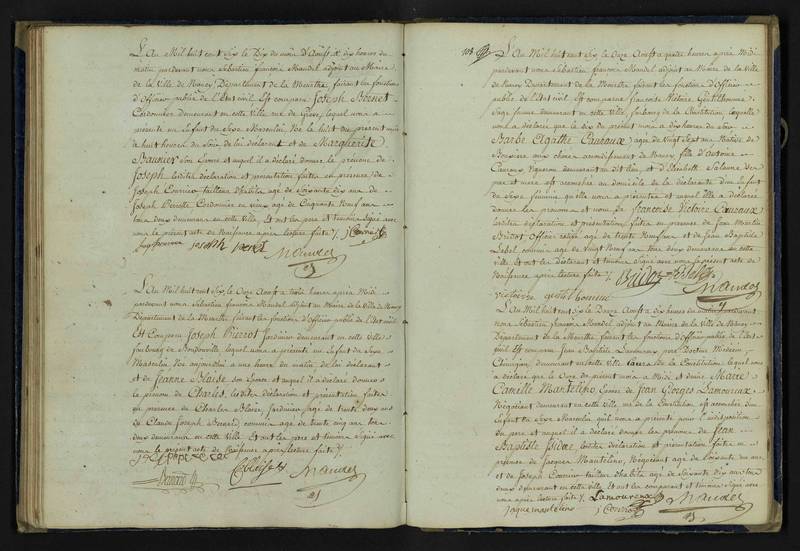 L'An Mil huit cent Six le Dix du mois d'Aoust à dix heures du
matin pardevant nous Sébastien François Mandel adjoint au Maire
de la Ville de Nancy Département de la Meurthe, faisant les fonctions
d'Officier public de l'Etat civil Est comparu Joseph Poirot
Cordonnier demeurant en cette Ville, rue de Grève, lequel nous a
présenté un Enfant du Sexe Masculin, Né le huit du présent mois
de huit heures du Soir, de lui déclarant et de Marguerite
son Epouse et auquel il a déclaré donner le prénom de
Joseph lesdites déclaration et présentation faites en présence de
Joseph Courrier tailleur d'habits, agé de Soixante dix ans et
Joseph Cordonnier en vieux, agé de Cinquante Neuf ans
tous deux demeurans en cette Ville, Et ont les père et témoins Signé avec
nous le présent acte de Naissance après lecture faite /.
Joseph
Mandel
L'An Mil huit cent Six, le Onze Aoust à trois heures après Midi
pardevant nous Sébastien françois Mandel adjoint au Maire de la Ville de Nancy
Département de la Meurthe, faisant les fonctions d'Officier public de l'état civil
Est Comparu Joseph Pierrot Jardinier demeurant en cette Ville
faubourg de Boudonville, lequel nous a présenté un Enfant du Sexe
Masculin Né aujourd'hui à une heure du matin de lui déclarant
et de Jeanne Blaise son Epouse et auquel il a déclaré donner
le prénom de Charles, lesdites déclaration et présentation faites
en présence de Charles Blaise, Jardinier, agé de trente deux ans
et de Claude Joseph commis agé de trente cinq ans tous
deux demeurans en cette Ville. Et ont les père et témoins Signé avec
nous le présent acte de Naissance après lecture faite /.
C Blaise
Mandel
108
L'An Mil huit cent Six le Onze Aoust à quatre heures après Midi
pardevant nous Sébastien françois Mandel adjoint au Maire de la Ville
de Nancy Département de la Meurthe faisant les fonctions d'Officier
public de l'état civil Est comparue françoise Victoire Gentilhomme
Sage femme demeurant en cette Ville, faubourg de la Constitution, laquelle
nous a déclaré que le dix du présent mois à dix heures du Soir
Barbe Agathe agée de Vingt Sept ans Native de
arrondissement de Nancy fille d'Antoine
Vigneron demeurant au dit lieu, et d'Elisabeth
père et mère est accouchée au domicile de la déclarante d'un Enfant
du Sexe féminin qu'elle nous a présenté et auquel elle a déclaré
donner les prénoms et nom de françoise Victoire
lesdites déclaration et présentation faites en présence de Jean Martin
Bridot agé de trente Neuf ans et de Jean Baptiste
commis agé de Vingt Neuf ans tous deux demeurans en cette
Ville Et ont les déclarant et témoins Signé avec nous le présent acte de
Naissance après lecture faite /.
Bridot
Mandel
victoire gentilhomme
L'An Mil huit cent Six le Douze Aoust à dix heures du matin pardevant
nous Sébastien françois Mandel adjoint au Maire de la Ville de Nancy,
Département de la Meurthe, faisant les fonctions d'officier public de l'état
civil Est comparu Jean Baptiste Lamoureux père Docteur Médecin,
Chirurgien, demeurant en cette Ville, place de la Constitution, lequel nous
a déclaré que le Onze du présent mois à Midi et demie Marie
Camille Mantelino, Epouse de Jean Georges Lamoureux
Négociant demeurant en cette Ville rue de la Constitution, est accouchée d'un
Enfant du Sexe Masculin qu'il nous a présenté pour l'indisposition
du père et auquel il a déclaré donner les prénoms de Jean
Baptiste Isidore lesdites déclaration et présentation faites en
présence de Jacques Mantelino, Négociant agé de Soixante un ans
et de Joseph Courrier tailleur d'habits agé de Soixante dix ans tous
deux demeurans en cette Ville, et ont les comparant et témoins Signé avec
nous après lecture faite /.
Lamoureux
Mandel
jaque mantelino